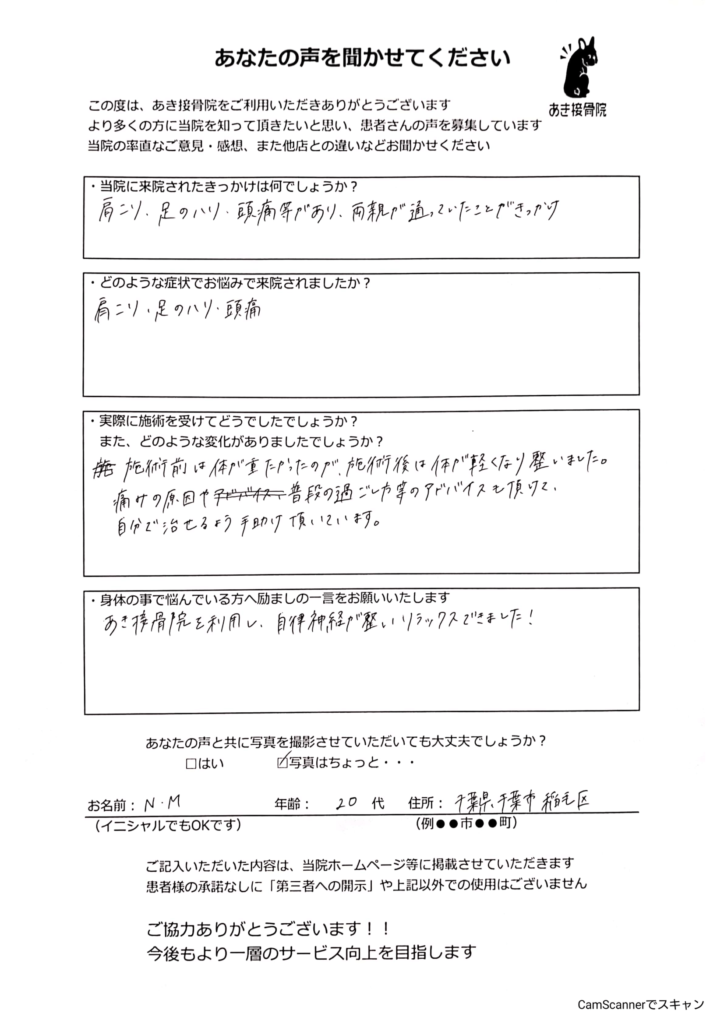 あなたの声を聞かせてください
あき接骨院
この度は、あき接骨院をご利用いただきありがとうございます
より多くの方に当院を知って頂きたいと思い、患者さんの声を募集しています
当院の率直なご意見・感想、また他店との違いなどお聞かせください
・当院に来院されたきっかけは何でしょうか？
肩こり、足のハリ・頭痛等があり、両親が通っていたことがきっかけ
・どのような症状でお悩みで来院されましたか？
肩こり、足のハリ・頭痛
・実際に施術を受けてどうでしたでしょうか？
また、どのような変化がありましたでしょうか？
施術前は体が重たかったのが、施術後は体が軽くなり整いました。
痛みの原因やアドバイス、普段の過ごし方等のアドバイスも頂けて、
自分で治せるよう手助け頂いています。
・身体の事で悩んでいる方へ励ましの一言をお願いいたします
あき接骨院を利用し、自律神経が整いリラックスできました！
あなたの声と共に写真を撮影させていただいても大丈夫でしょうか？
□はい ☑写真はちょっと・・・
お名前：N・M 年齢： 20 代 住所：千葉県千葉市稲毛区
（イニシャルでもOKです） （例●●市●●町）
ご記入いただいた内容は、当院ホームページ等に掲載させていただきます
患者様の承諾なしに「第三者への開示」や上記以外での使用はございません
ご協力ありがとうございます！！
今後もより一層のサービス向上を目指します
CamScannerでスキャン